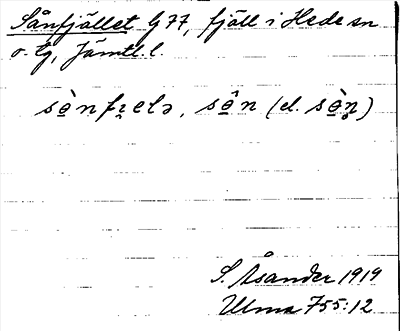 Sånfjället G 77, fjäll i Hede sn
o. tg, Jämtl. l.
sònfɪ̯elə, sôn (el. sòn̥)
S. Åsander 1919
Ulma 755:12